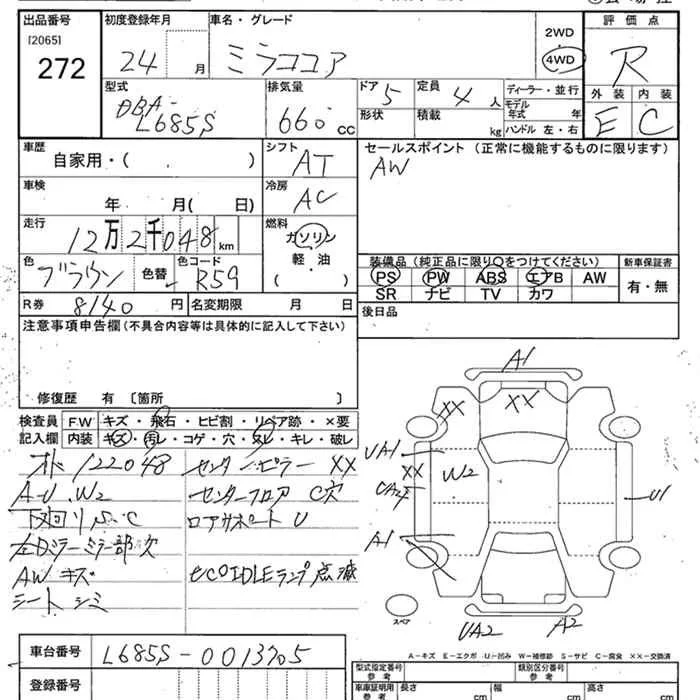 出品番号
[2065]
272
初度登録年月
24 月
車名・グレード
ミラココア
2WD
4WD
評価点
R
外装 内装
E C
型式
DBA-
L685S
排気量
660 cc
ドア 5
形状
定員 4 人
積載 kg
ディーラー・並行
モデル年式 年
ハンドル 左・右
車歴
自家用・( )
シフト
AT
セールスポイント (正常に機能するものに限ります)
AW
車検
年 月( 日)
冷房
AC
走行
12万2千048 km
燃料
ガソリン
軽・油
色
ブラウン
色替
色コード
R59
装備品 (純正品に限り○をつけてください)
PS PW ABS エアB AW
SR ナビ TV カワ
新車保証書
有・無
R券 8140 円
名変期限 月 日
後日品
注意事項申告欄 (不具合内容等は具体的に記入して下さい)
修復歴 有 [箇所 ]
検査員
記入欄
F.W キズ・飛石・ヒビ割・リペア跡・×要
内装 キズ・汚レ・コゲ・穴・スレ・キレ・破レ
122048
センターピラー XX
A-U、W2
センターフロア C穴
下回り S、C
ロアサポート U
左Dミラーミラー部欠
AW キズ
eCOIDLEランプ点滅
シート シミ
A1
XX
XX
UA1
XX
W2
UA2
U1
A1
スペア
UA2
A2
A-キズ E-エクボ U-凹み W-補修跡 S-サビ C-腐食 XX-交換済
車台番号
L685S-0013705
登録番号
型式指定番号
参考
類別区分番号
参考
車庫証明用
参考
長さ cm
幅 cm
高さ cm